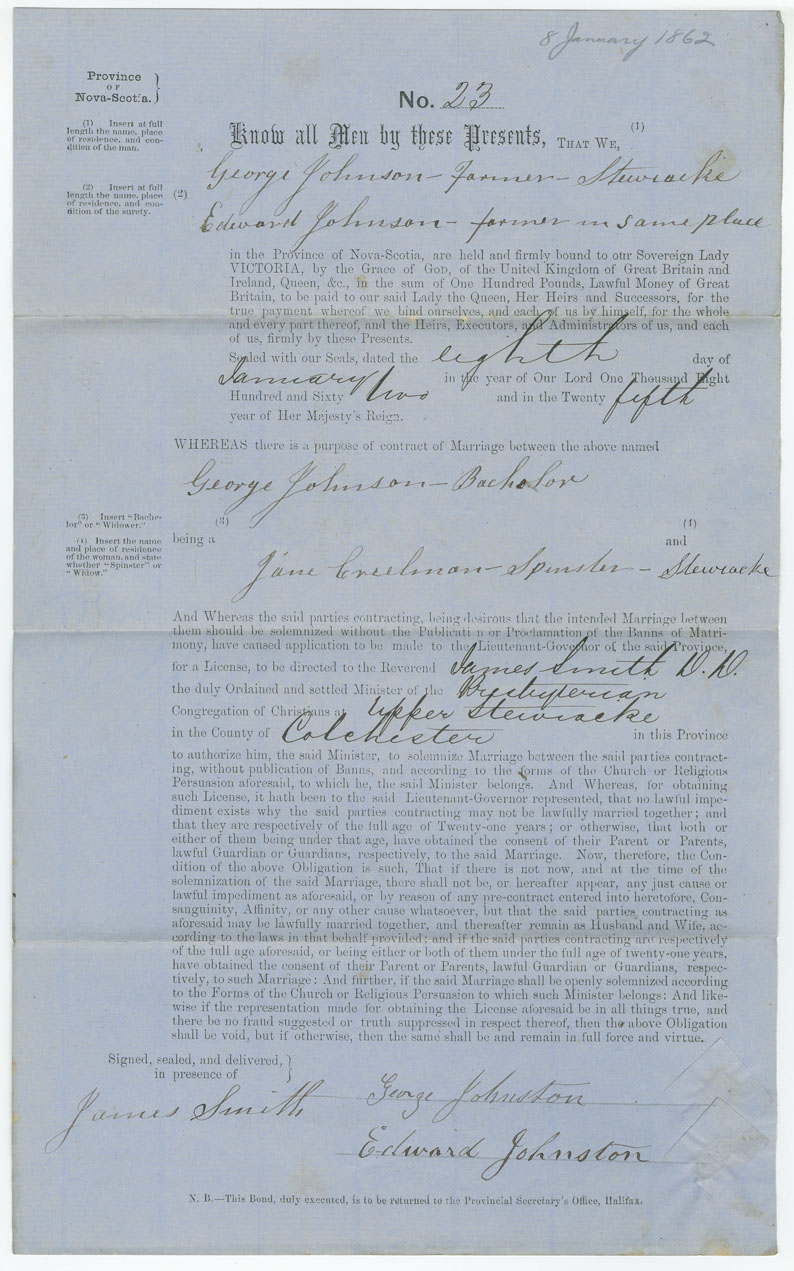 8 January 1862
Province
OF
Nova-Scotia.
No. 23
(1) Insert at full
length the name, place
of residence, and con-
dition of the man.
Know all Men by these Presents, THAT WE, (1)
George Johnson - Farmer - Stewiacke
(2) Insert at full
length the name, place
of residence, and con-
dition of the surety.
(2)
Edward Johnson - farmer in same place
in the Province of Nova-Scotia, are held and firmly bound to our Sovereign Lady
VICTORIA, by the Grace of GOD, of the United Kingdom of Great Britain and
Ireland, Queen, &c., in the sum of One Hundred Pounds, Lawful Money of Great
Britain, to be paid to our said Lady the Queen, Her Heirs and Successors, for the
true payment whereof we bind ourselves, and each of us by himself, for the whole
and every part thereof, and the Heirs, Executors, and Administrators of us, and each
of us, firmly by these Presents.
Sealed with our Seals, dated the eighth day of
January in the year of Our Lord One Thousand Eight
Hundred and Sixty two and in the Twenty fifth
year of Her Majesty's Reign.
WHEREAS there is a purpose of contract of Marriage between the above named
George Johnson - Bachelor
(3) Insert "Bache-
lor" or "Widower."
(3)
(4)
being a
and
(4) Insert the name
and place of residence
of the woman, and state
whether "Spinster" or
"Widow."
Jane Creelman - Spinster - Stewiacke
And Whereas the said parties contracting, being desirous that the intended Marriage between
them should be solemnized without the Publicati n or Proclamation of the Banns of Matri-
mony, have caused application to be made to the Lieutenant-Governor of the said Province,
for a License, to be directed to the Reverend James Smith D. D.
the duly Ordained and settled Minister of the Presbyterian
Congregation of Christians at Upper Stewiacke
in the County of Colchester in this Province
to authorize him, the said Minister, to solemnize Marriage between the said parties contract-
ing, without publication of Banns, and according to the forms of the Church or Religious
Persuasion aforesaid, to which he, the said Minister belongs. And Whereas, for obtaining
such License, it hath been to the said Lieutenant-Governor represented, that no lawful impe-
diment exists why the said parties contracting may not be lawfully married together; and
that they are respectively of the full age of Twenty-one years; or otherwise, that both or
either of them being under that age, have obtained the consent of their Parent or Parents,
lawful Guardian or Guardians, respectively, to the said Marriage. Now, therefore, the Con-
dition of the above Obligation is such, That if there is not now, and at the time of the
solemnization of the said Marriage, there shall not be, or hereafter appear, any just cause or
lawful impediment as aforesaid, or by reason of any pre-contract entered into heretofore, Con-
sanguinity, Affinity, or any other cause whatsoever, but that the said parties contracting as
aforesaid may be lawfully married together, and thereafter remain as Husband and Wife, ac-
cording to the laws in that behalf provided; and if the said parties contracting are respectively
of the full age aforesaid, or being either or both of them under the full age of twenty-one years,
have obtained the consent of their Parent or Parents, lawful Guardian or Guardians, respec-
tively, to such Marriage: And further, if the said Marriage shall be openly solemnized according
to the Forms of the Church or Religious Persuasion to which such Minister belongs: And like-
wise if the representation made for obtaining the License aforesaid be in all things true, and
there be no fraud suggested or truth suppressed in respect thereof, then the above Obligation
shall be void, but if otherwise, then the same shall be and remain in full force and virtue.
Signed, sealed, and delivered,
in presence of
James Smith
George Johnston
Edward Johnston
N. B.—This Bond, duly executed, is to be returned to the Provincial Secretary's Office, Halifax.